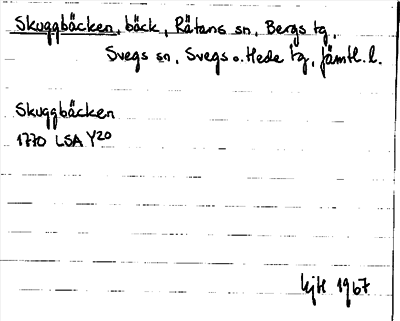 Skuggbäcken, bäck, Rätans sn, Bergs tg,
Svegs sn, Svegs o. Hede tg, Jämtl. l.
Skuggbäcken
1770 LSA Y20
1967